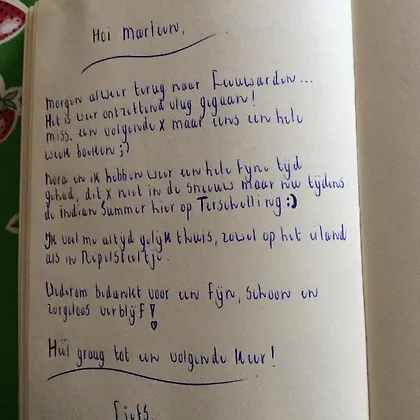 Hoi Marleen,
morgen alweer terug naar Leeuwarden...
Het is weer ontzettend vlug gegaan!
miss. een volgende x maar eens een hele
week boeken ;)
Nora en ik hebben weer een hele fijne tijd
gehad, dit x niet in de sneeuw maar nu tijdens
de indian Summer hier op Terschelling :)
Ik voel me altijd gelijk thuis, zowel op het eiland
als in Repelsteeltje.
Wederom bedankt voor een fijn, schoon en
zorgeloos verblijf!
Heel graag tot een volgende keer!
Liefs,